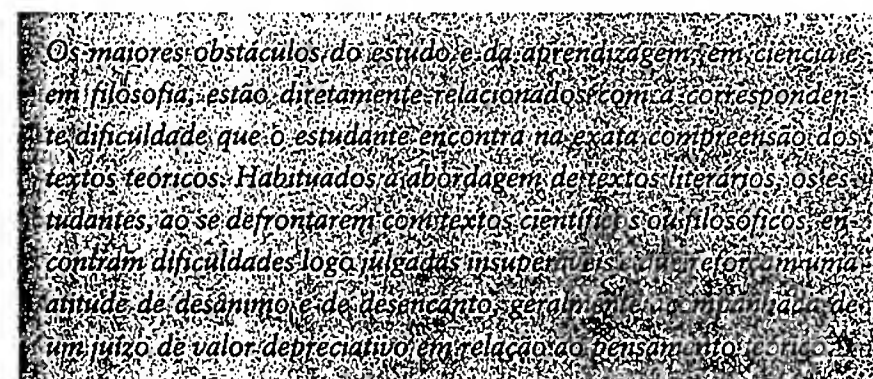 Os maiores obstáculos do estudo e da aprendizagem, em ciência e
em filosofia, estão diretamente relacionados com a corresponden-
te dificuldade que o estudante encontra na exata compreensão dos
textos teóricos. Habituados à abordagem de textos literários, os es-
tudantes, ao se defrontarem com textos científicos ou filosóficos, en-
contram dificuldades logo julgadas insuperáveis e que reforçam uma
atitude de desânimo e de desencanto, geralmente acompanhada de
um juízo de valor depreciativo em relação ao pensamento teórico.